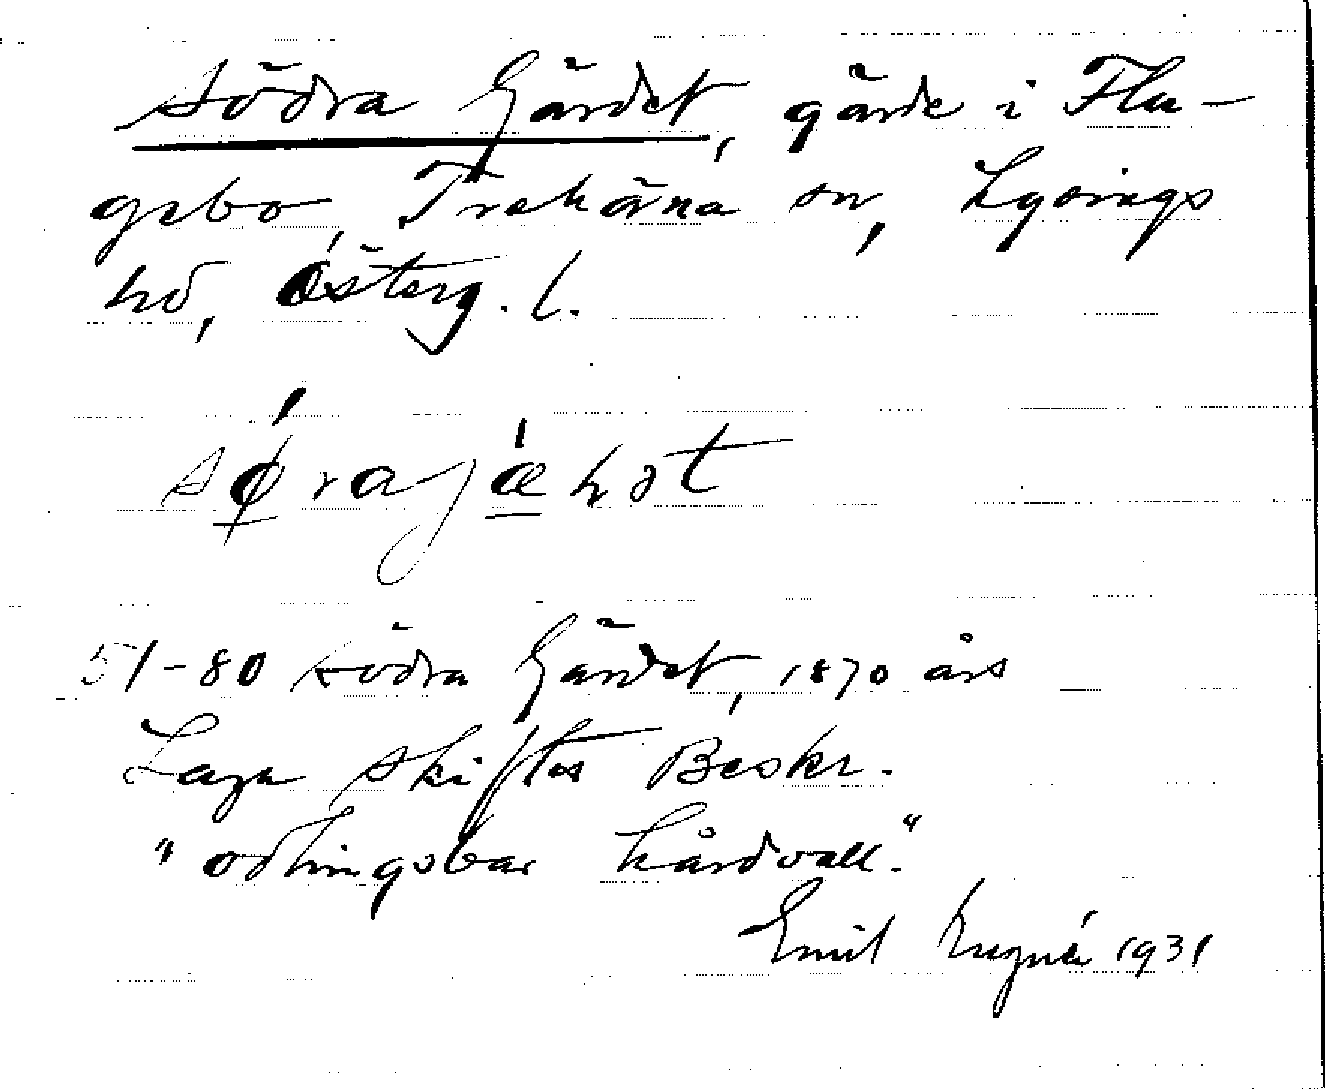 Södra Gärdet, gärde i Flu-
gebo, Trehörna sn, Lysings
hd, Österg. l.
sørajæhət
51-80 Södra Gärdet, 1870 års
Laga skiftes Beskr.
"odlingsbar hårdvall."
Emil 1931